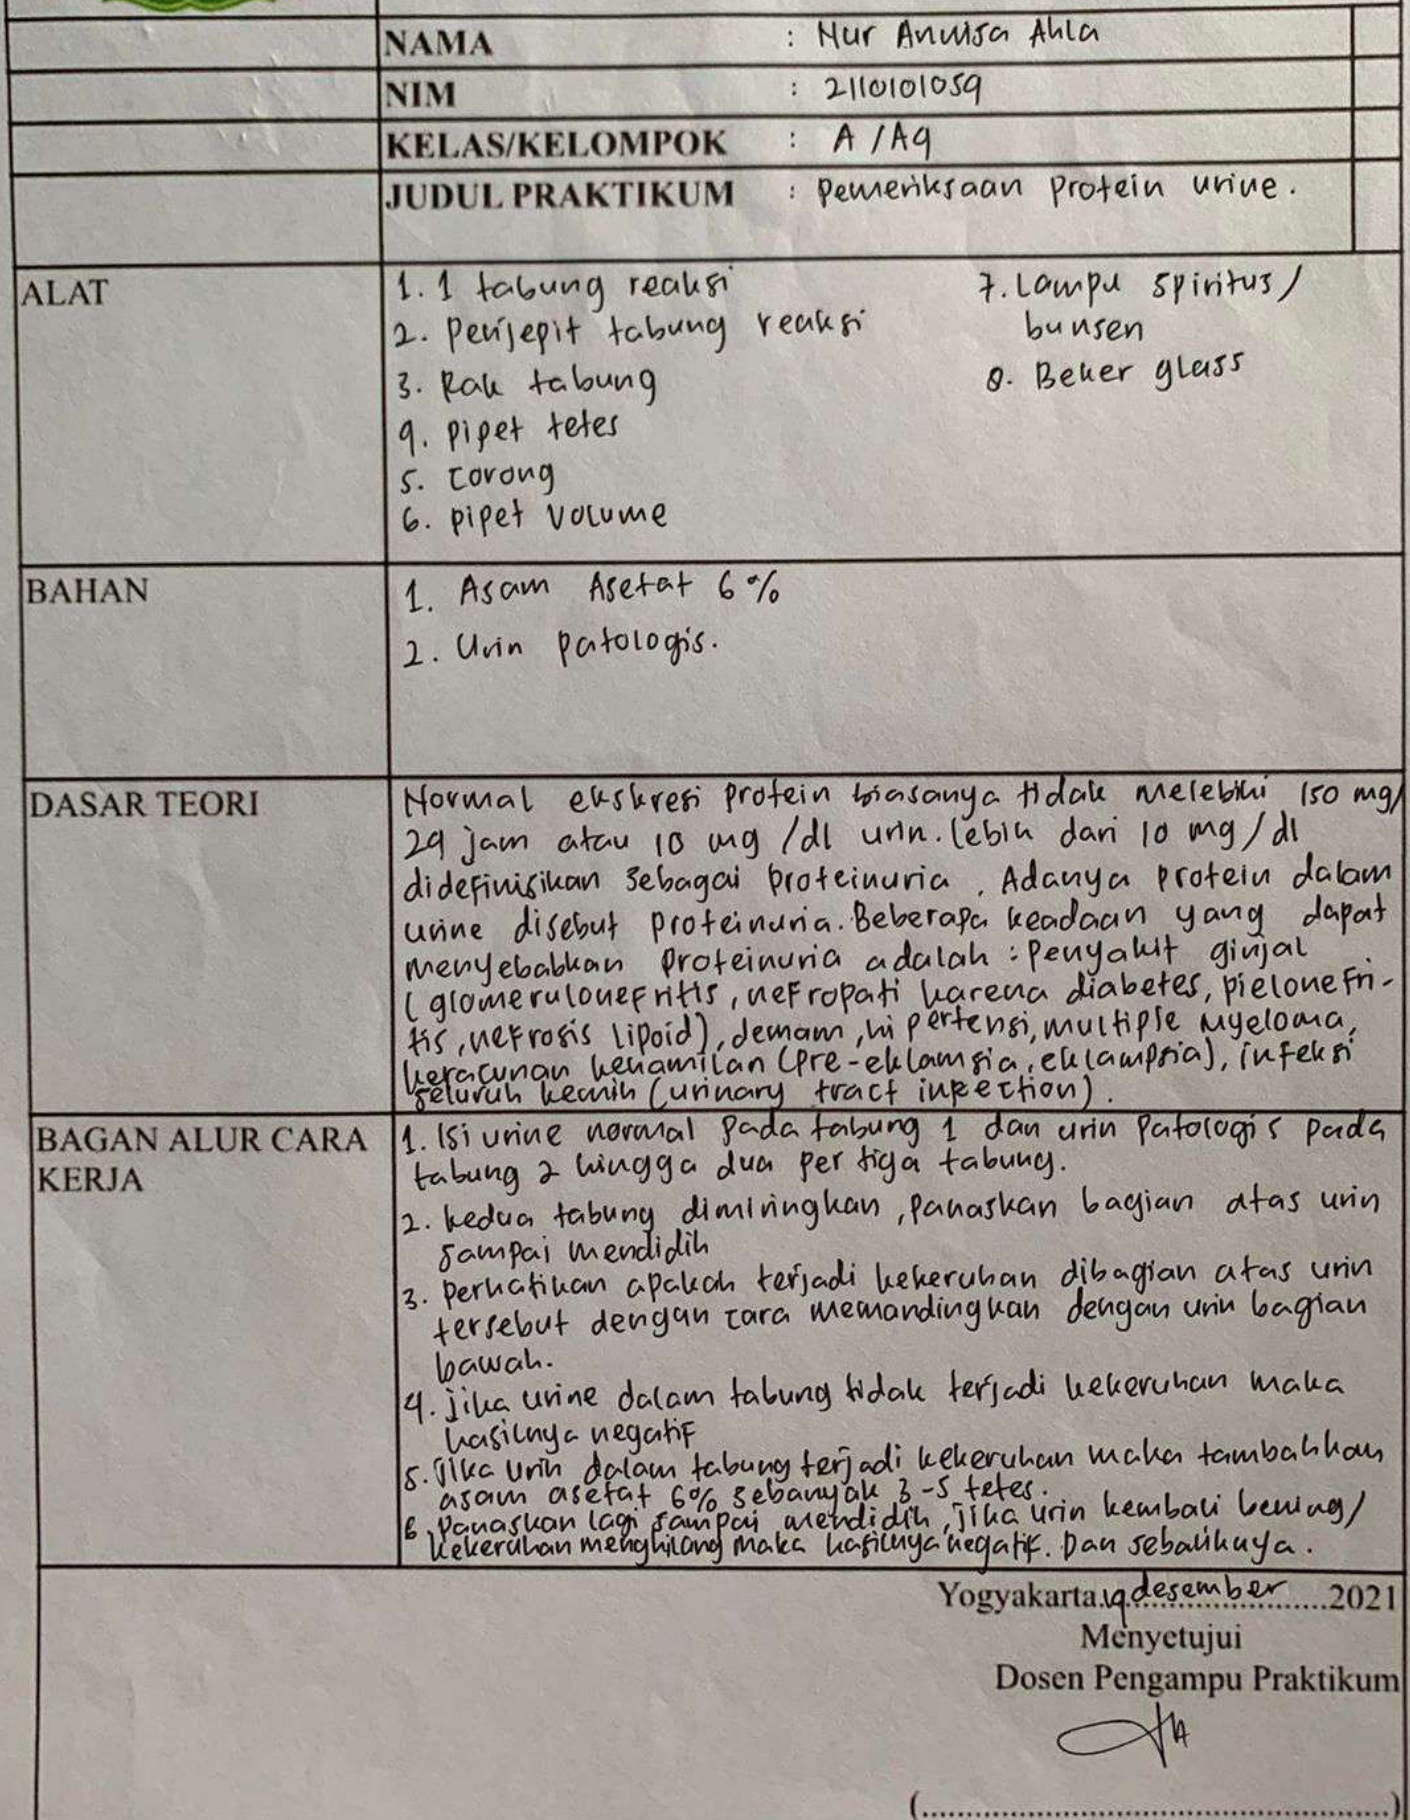 NAMA : Nur Annisa Ahla
NIM : 2110101059
KELAS/KELOMPOK : A / A4
JUDUL PRAKTIKUM : Pemeriksaan Protein urine.
ALAT
1. 1 tabung reaksi
2. Penjepit tabung reaksi
3. Rak tabung
4. pipet tetes
5. corong
6. pipet volume
7. Lampu spiritus/
bunsen
8. Beker glass
BAHAN
1. Asam Asetat 6%
2. Urin patologis.
DASAR TEORI
Normal ekskresi protein biasanya tidak melebihi 150 mg/
24 jam atau 10 mg /dl urin. lebih dari 10 mg/dl
didefinisikan sebagai proteinuria. Adanya protein dalam
urine disebut proteinuria. Beberapa keadaan yang dapat
menyebabkan proteinuria adalah : penyakit ginjal
(glomerulonefritis, nefropati karena diabetes, pielonefri-
tis, nefrosis lipoid), demam, hipertensi, multiple myeloma,
keracunan kehamilan (pre-eklamsia, eklampsia), infeksi
seluruh kemih (urinary tract infection).
BAGAN ALUR CARA
KERJA
1. Isi urine normal pada tabung 1 dan urin patologis pada
tabung 2 hingga dua per tiga tabung.
2. kedua tabung dimiringkan, panaskan bagian atas urin
sampai mendidih
3. perhatikan apakah terjadi kekeruhan dibagian atas urin
tersebut dengan cara memandingkan dengan urin bagian
bawah.
4. jika urine dalam tabung tidak terjadi kekeruhan maka
hasilnya negatif
5. jika urin dalam tabung terjadi kekeruhan maka tambahkan
asam asetat 6% sebanyak 3-5 tetes.
6. Panaskan lagi sampai mendidih, jika urin kembali bening/
kekeruhan menghilang maka hasilnya negatif. Dan sebaliknya.
Yogyakarta.14 desember..........2021
Menyetujui
Dosen Pengampu Praktikum
(..........................................................)